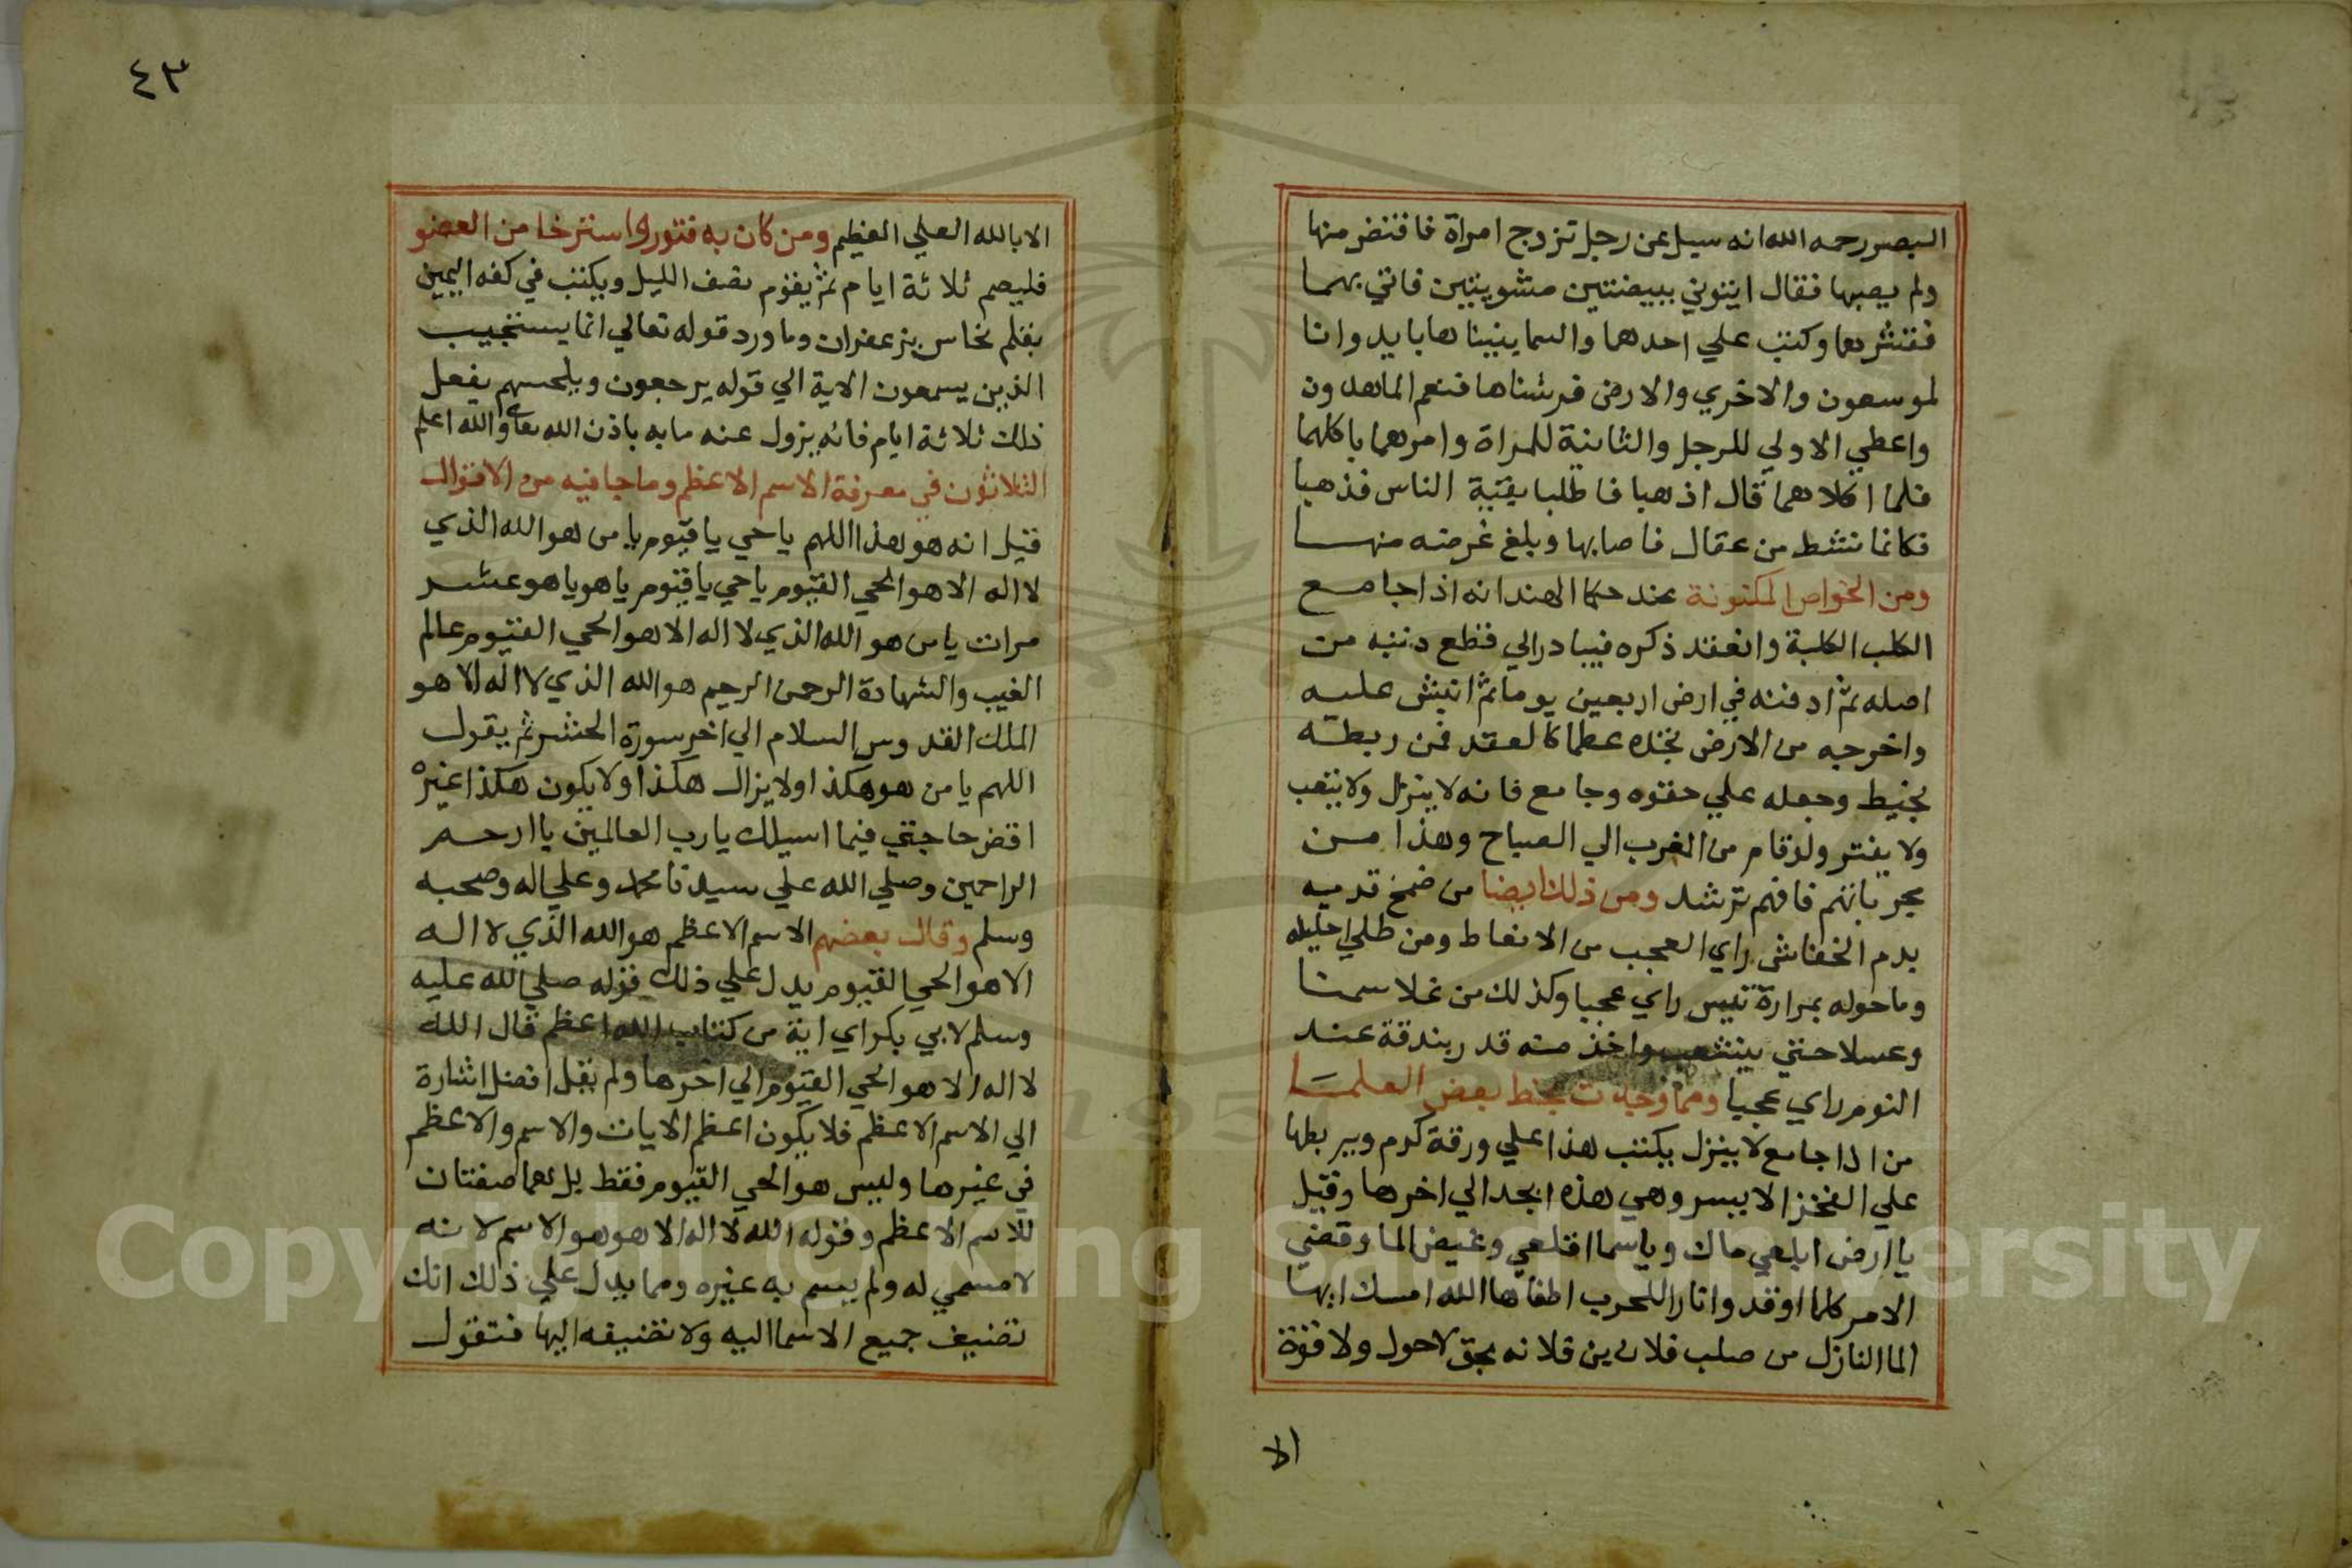 البصر رحمه الله انه سيل عن رجل تزوج امراة فافتض منها
ولم يصبها فقال ايتوني ببيضتين مشويتين فاتي بهما
فقشرهما وكتب علي احدهما والسما بنيناها بايد وانا
لموسعون والاخري والارض فرشناها فنعم الماهدون
واعطي الاولي للرجل والثانية للمراة وامرهما باكلهما
فلما اكلاهما قال اذهبا فاطلبا بقية الناس فذهبا
فكانما نشط من عقال فاصابها وبلغ غرضه منها
ومن الخواص المكنونة عند حكما الهند انه اذا جامع
الكلب الكلبة وانعقد ذكره فيبادر الي قطع ذنبه من
اصله ثم ادفنه في ارض اربعين يوما ثم انبش عليه
واخرجه من الارض تجده عظما كالعقد فمن ربطه
بخيط وجعله علي حقوه وجامع فانه لا ينزل ولا يتعب
ولا يفتر ولو قام من الغرب الي الصباح وهذا من
مجرباتهم فافهم ترشد ومن ذلك ايضا من ضمخ قدميه
بدم الخفاش راي العجب من الانعاظ ومن طلي احليله
وما حوله بمرارة تيس راي عجبا وكذلك من غلا سمنا
وعسلا حتي ينشعب واخذ منه قدر بندقة عند
النوم راي عجبا ومما وجدت بخط بعض العلما
من اذا جامع لا ينزل يكتب هذا علي ورقة كرم ويربطها
علي الفخز الايسر وهي هذه ابجد الي اخرها وقيل
يا ارض ابلعي ماك ويا سما اقلعي وغيض الما وقضي
الامر كلما اوقدوا نارا للحرب اطفاها الله امسك ايها
الما النازل من صلب فلان بن فلانه بحق لا حول ولا قوة
الا
٤٣
الا بالله العلي العظيم ومن كان به فتور واسترخا من العضو
فليصم ثلاثة ايام ثم يقوم نصف الليل ويكتب في كفه اليمين
بقلم نحاس بزعفران وماورد قوله تعالي انما يستجيب
الذين يسمعون الاية الي قوله يرجعون ويلحسهم يفعل
ذلك ثلاثة ايام فانه يزول عنه ما به باذن الله تعا والله اعلم
الثلاثون في معرفة الاسم الاعظم وما جا فيه من الاقوال
فقيل انه هو هذا اللهم يا حي يا قيوم يا من هو الله الذي
لا اله الا هو الحي القيوم يا حي يا قيوم يا هو يا هو عشر
مرات يا من هو الله الذي لا اله الا هو الحي القيوم عالم
الغيب والشهادة الرحمن الرحيم هو الله الذي لا اله الا هو
الملك القدوس السلام الي اخر سورة الحشر ثم يقول
اللهم يا من هو هكذا ولا يزال هكذا ولا يكون هكذا غيره
اقض حاجتي فيما اسيلك يا رب العالمين يا ارحم
الراحمين وصلي الله علي سيدنا محمد وعلي اله وصحبه
وسلم وقال بعضهم الاسم الاعظم هو الله الذي لا اله
الا هو الحي القيوم يدل علي ذلك قوله صلي الله عليه
وسلم لابي بكر اي اية من كتاب الله اعظم قال الله
لا اله الا هو الحي القيوم الي اخرها ولم يقل افضل اشارة
الي الاسم الاعظم فلا يكون اعظم الايات والاسم والاعظم
في غيرها وليس هو الحي القيوم فقط بل هما صفتان
للاسم الاعظم وقوله الله لا اله الا هو هو الاسم لانه
لا مسمي له ولم يسم به غيره ومما يدل علي ذلك انك
تضيف جميع الاسما اليه ولا تضيفه اليها فتقول
Copyright © King Saud University